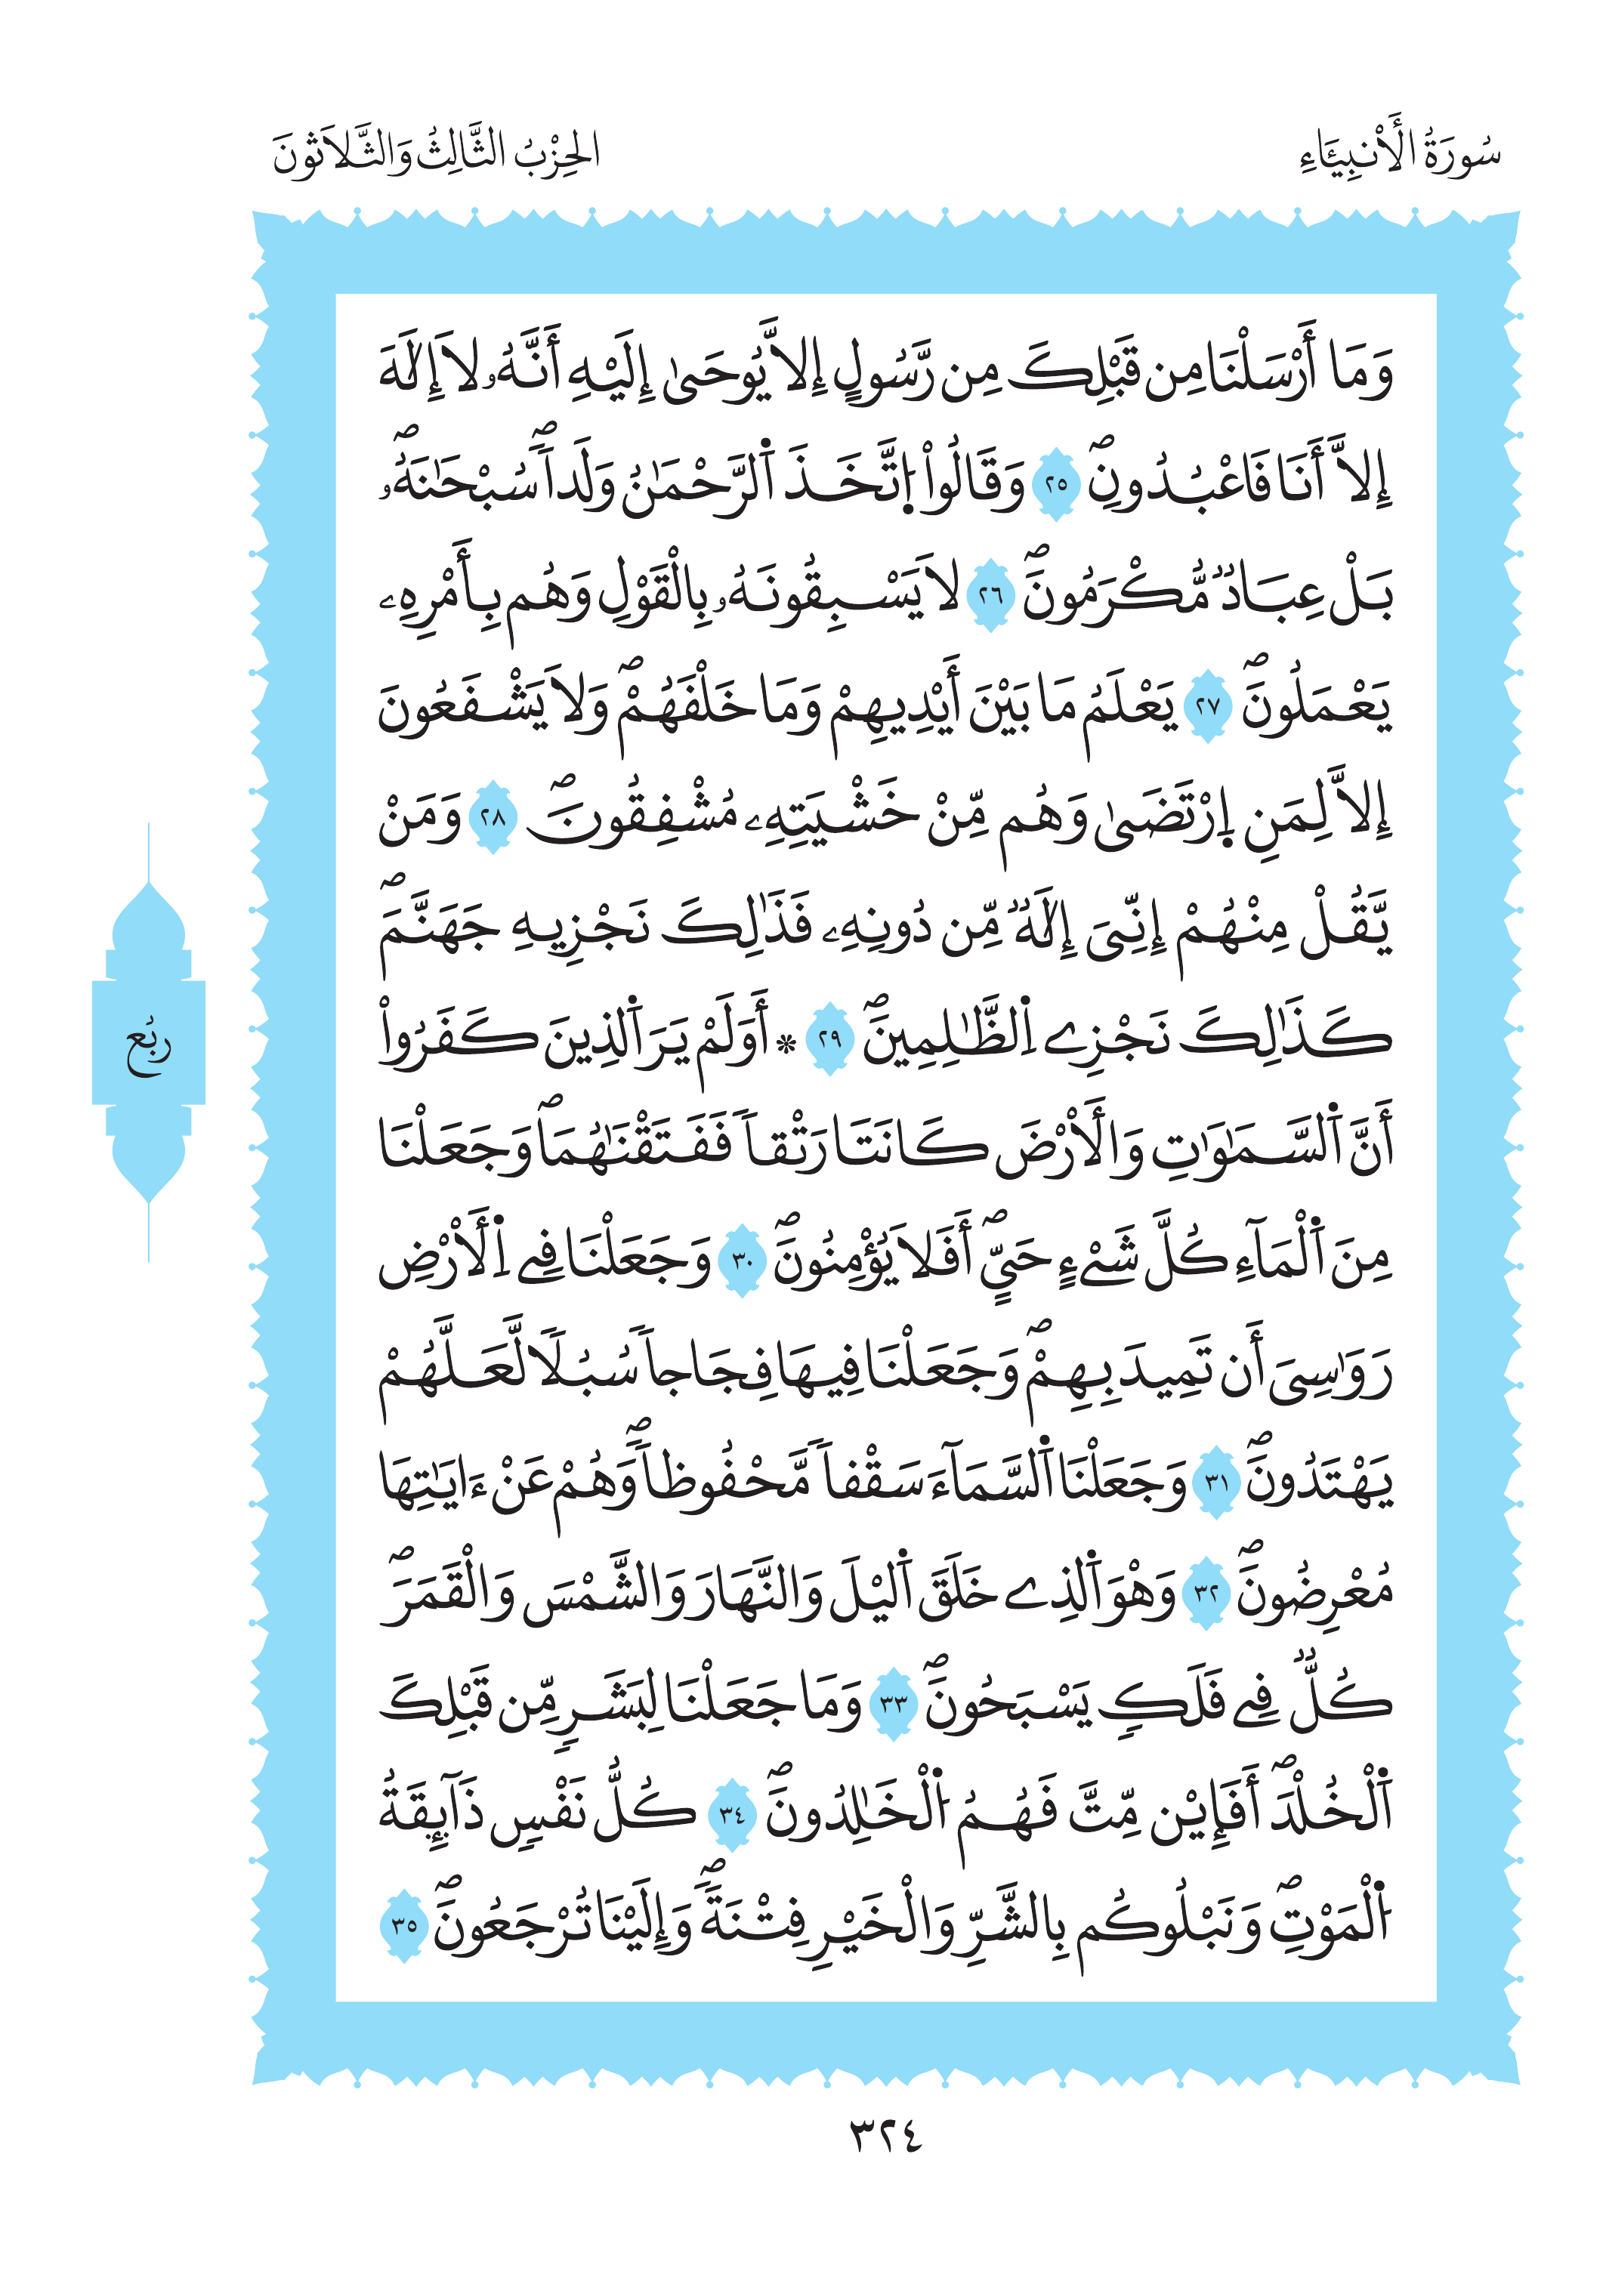 سُورَةُ الْأَنبِيَاءِ
الحِزْبُ الثَّالِثُ وَالثَّلَاثُونَ
وَمَا أَرْسَلْنَا مِن قَبْلِكَ مِن رَّسُولٍ إِلَّا يُوحَىٰ إِلَيْهِ أَنَّهُۥ لَا إِلَٰهَ
إِلَّا أَنَا فَاعْبُدُونِۖ ٢٥ وَقَالُواْ اُ۪تَّخَذَ اَ۬لرَّحْمَٰنُ وَلَداٗۖ سُبْحَٰنَهُۥۖ
بَلْ عِبَادٞ مُّكْرَمُونَۖ ٢٦ لَا يَسْبِقُونَهُۥ بِالْقَوْلِ وَهُم بِأَمْرِهِۦ
يَعْمَلُونَۖ ٢٧ يَعْلَمُ مَا بَيْنَ أَيْدِيهِمْ وَمَا خَلْفَهُمْۖ وَلَا يَشْفَعُونَ
إِلَّا لِمَنِ اِ۪رْتَضَىٰ وَهُم مِّنْ خَشْيَتِهِۦ مُشْفِقُونَۖ ٢٨ وَمَنْ
يَّقُلْ مِنْهُمْ إِنِّيَ إِلَٰهٞ مِّن دُونِهِۦ فَذَٰلِكَ نَجْزِيهِ جَهَنَّمَۖ
كَذَٰلِكَ نَجْزِے اِ۬لظَّٰلِمِينَۖ ٢٩ * أَوَلَمْ يَرَ اَ۬لذِينَ كَفَرُواْ
أَنَّ اَ۬لسَّمَٰوَٰتِ وَالْأَرْضَ كَانَتَا رَتْقاٗ فَفَتَقْنَٰهُمَاۖ وَجَعَلْنَا
مِنَ اَ۬لْمَآءِ كُلَّ شَےْءٍ حَيٍّۖ أَفَلَا يُؤْمِنُونَۖ ٣٠ وَجَعَلْنَا فِے اِ۬لْأَرْضِ
رَوَٰسِيَ أَن تَمِيدَ بِهِمْۖ وَجَعَلْنَا فِيهَا فِجَاجاٗ سُبُلٗا لَّعَلَّهُمْ
يَهْتَدُونَۖ ٣١ وَجَعَلْنَا اَ۬لسَّمَآءَ سَقْفاٗ مَّحْفُوظاٗۖ وَهُمْ عَنْ ءَايَٰتِهَا
مُعْرِضُونَۖ ٣٢ وَهْوَ اَ۬لذِے خَلَقَ اَ۬ليْلَ وَالنَّهَارَ وَالشَّمْسَ وَالْقَمَرَۖ
كُلّٞ فِے فَلَكٖ يَسْبَحُونَۖ ٣٣ وَمَا جَعَلْنَا لِبَشَرٖ مِّن قَبْلِكَ
اَ۬لْخُلْدَۖ أَفَإِيْن مِّتَّ فَهُمُ اُ۬لْخَٰلِدُونَۖ ٣٤ كُلُّ نَفْسٖ ذَآئِقَةُ
اُ۬لْمَوْتِۖ وَنَبْلُوكُم بِالشَّرِّ وَالْخَيْرِ فِتْنَةٗۖ وَإِلَيْنَا تُرْجَعُونَۖ ٣٥
رُبُع
٣٢٤